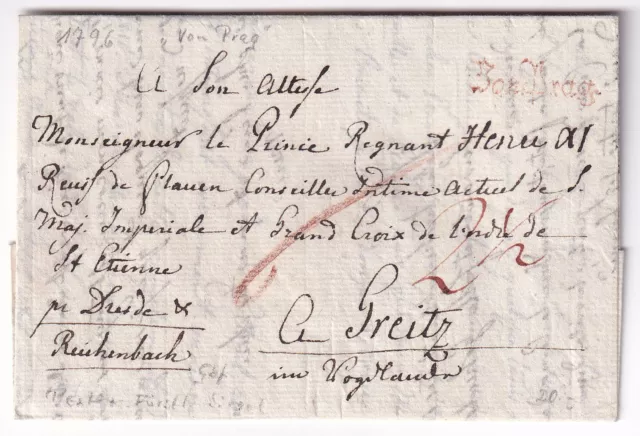 1796 "Von Prag"
Von Prag.
A Son Altesse
Monseigneur le Prince Regnant Henri XI
Reuss de Plauen Conseiller Intime actuel de S.
Maj. Imperiale et Grand Croix de l'ordre de
St Etienne
pr Dresde &
Reichenbach
6
2 1/2
A Greitz
im Vogtlande
Fürstl. Siegel
20.-